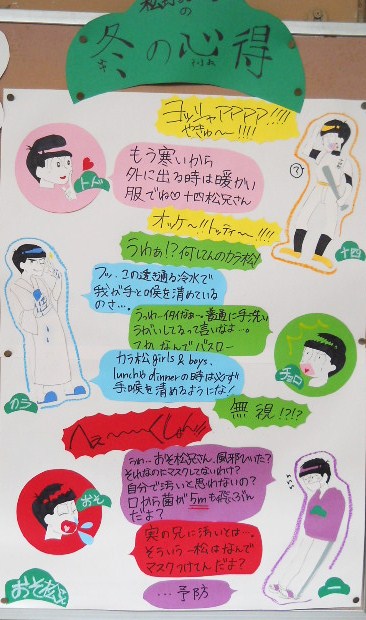 の
冬の心得
ヨッシャアアアア!!!!
やきゅ〜!!!!
トド
もう寒いから
外に出る時は暖かい
服でね♡十四松兄さん
?
十四
オッケ〜!!トッティ〜!!!!
うわぁ!?何してんのカラ松
フッ…この透き通る冷水で
我が手と喉を清めている
のさ…。
カラ
うっわーイタイなぁ〜。普通に手洗い
うがいしてるって言いなよ…。
つかなんでバスロー
チョロ
カラ松girls & boys.
lunchやdinnerの時は必ず
手・喉を清めるようにな!
無視!?!?
へぇ〜〜〜くしょん!!
おそ
うわ…おそ松兄さん、風邪ひいた?
それなのにマスクしてないわけ?
自分で汚いと思わないの?
口から菌が5mも飛ぶん
だよ?
実の兄に汚いとは…。
そういう一松はなんで
マスクつけてんだよ?
一
おそ松さん
…予防